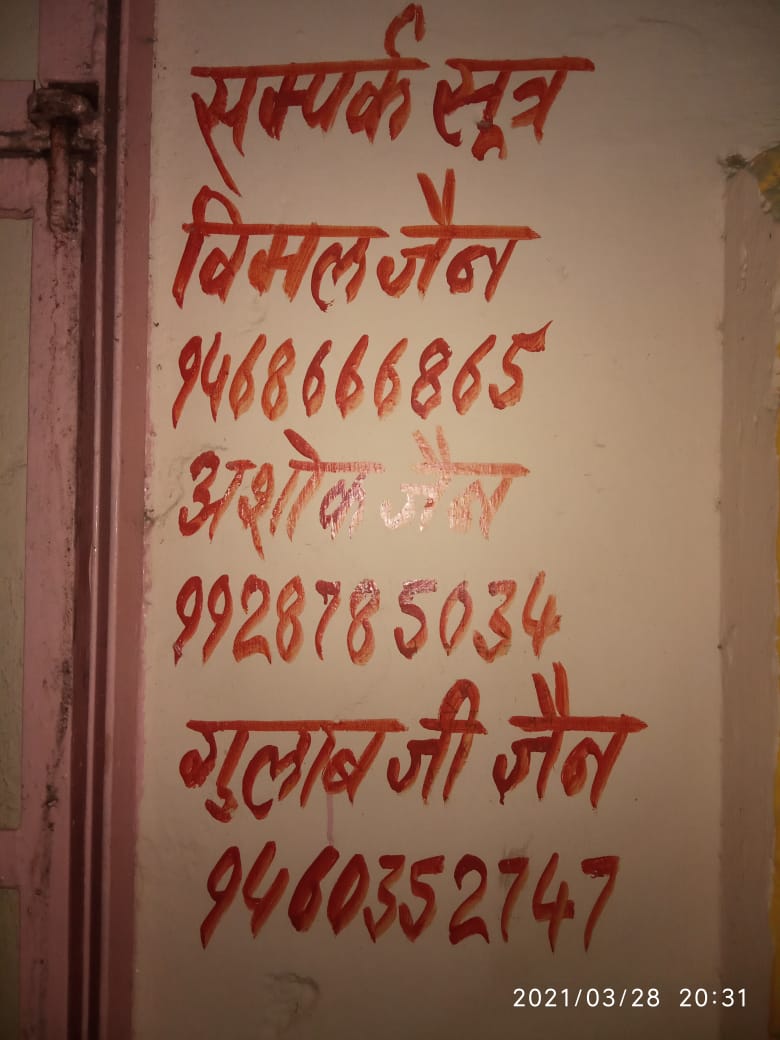 सम्पर्क सूत्र
विमल जैन
9468666865
अशोक जैन
9928785034
गुलाब जी जैन
9460352747
2021/03/28 20:31